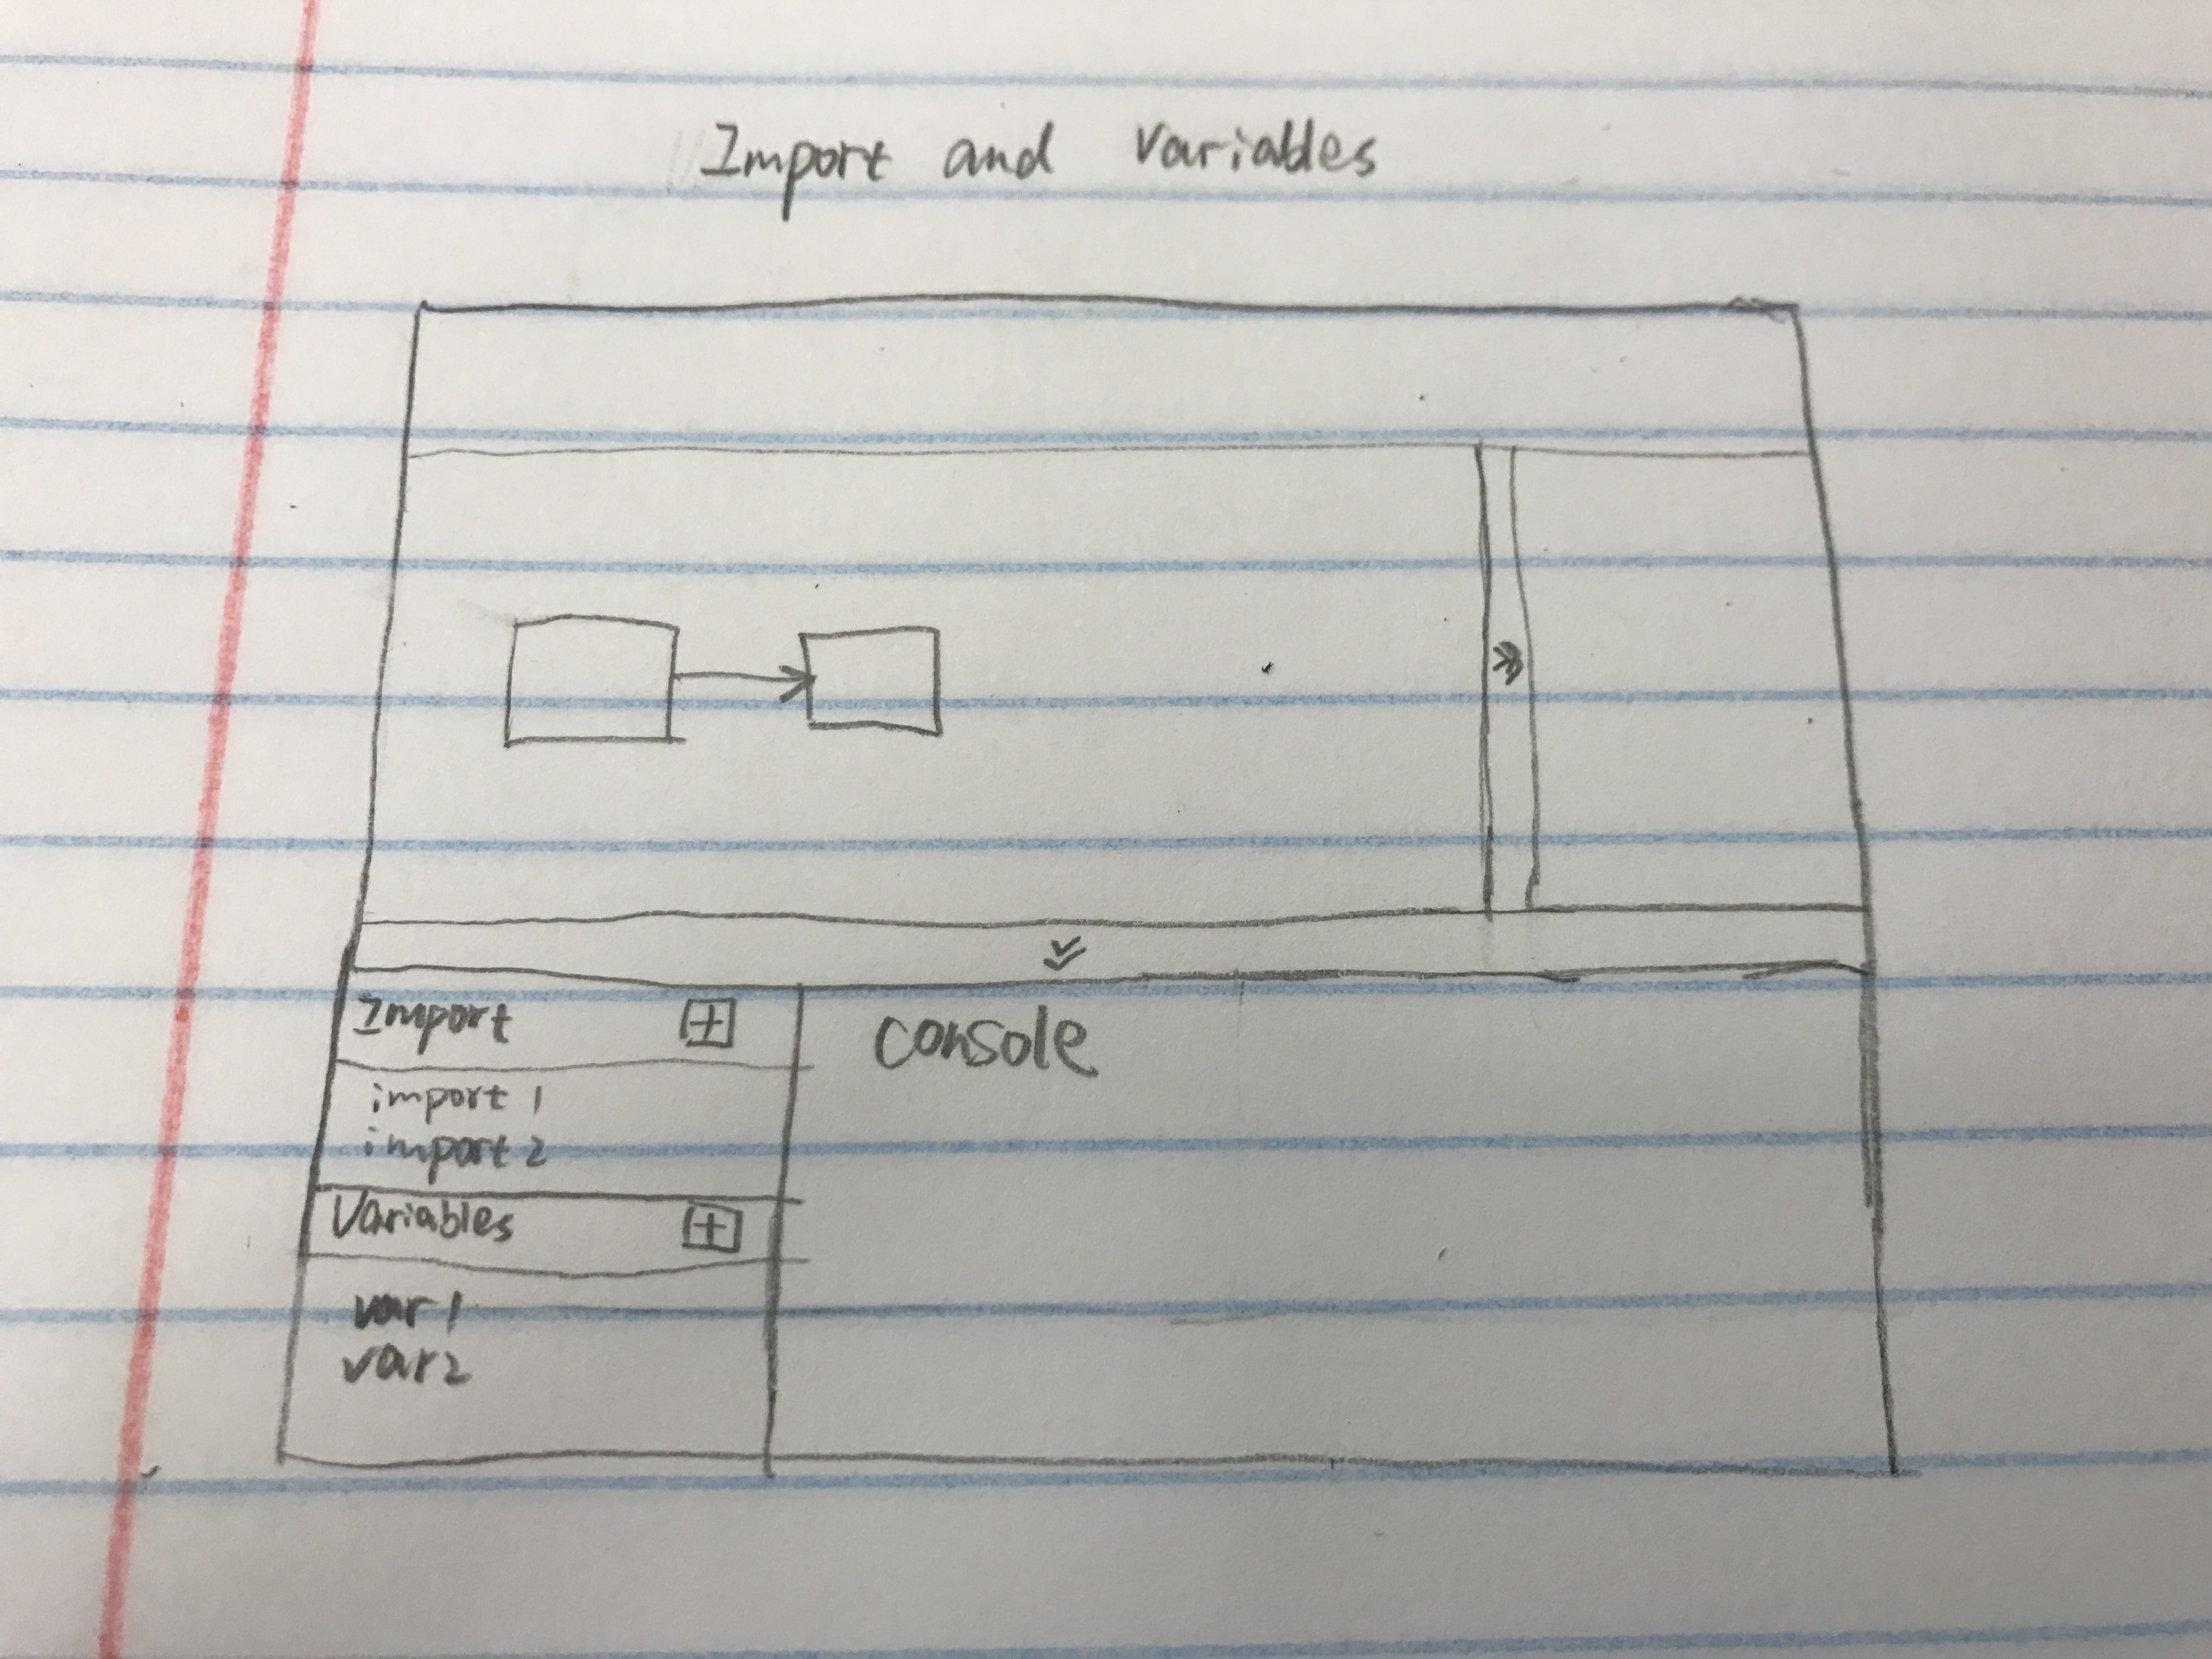 Import and Variables
Import
import 1
import 2
Variables
var 1
var 2
console